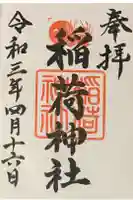 奉拝
稲荷神社
令和三年四月十六日